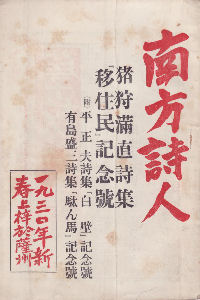 南方詩人
猪狩滿直詩集
「移住民」記念號
附 平正夫詩集「白壁」記念號
有島盛三詩集「駄ん馬」記念號
一九三〇年新
春上梓於薩州